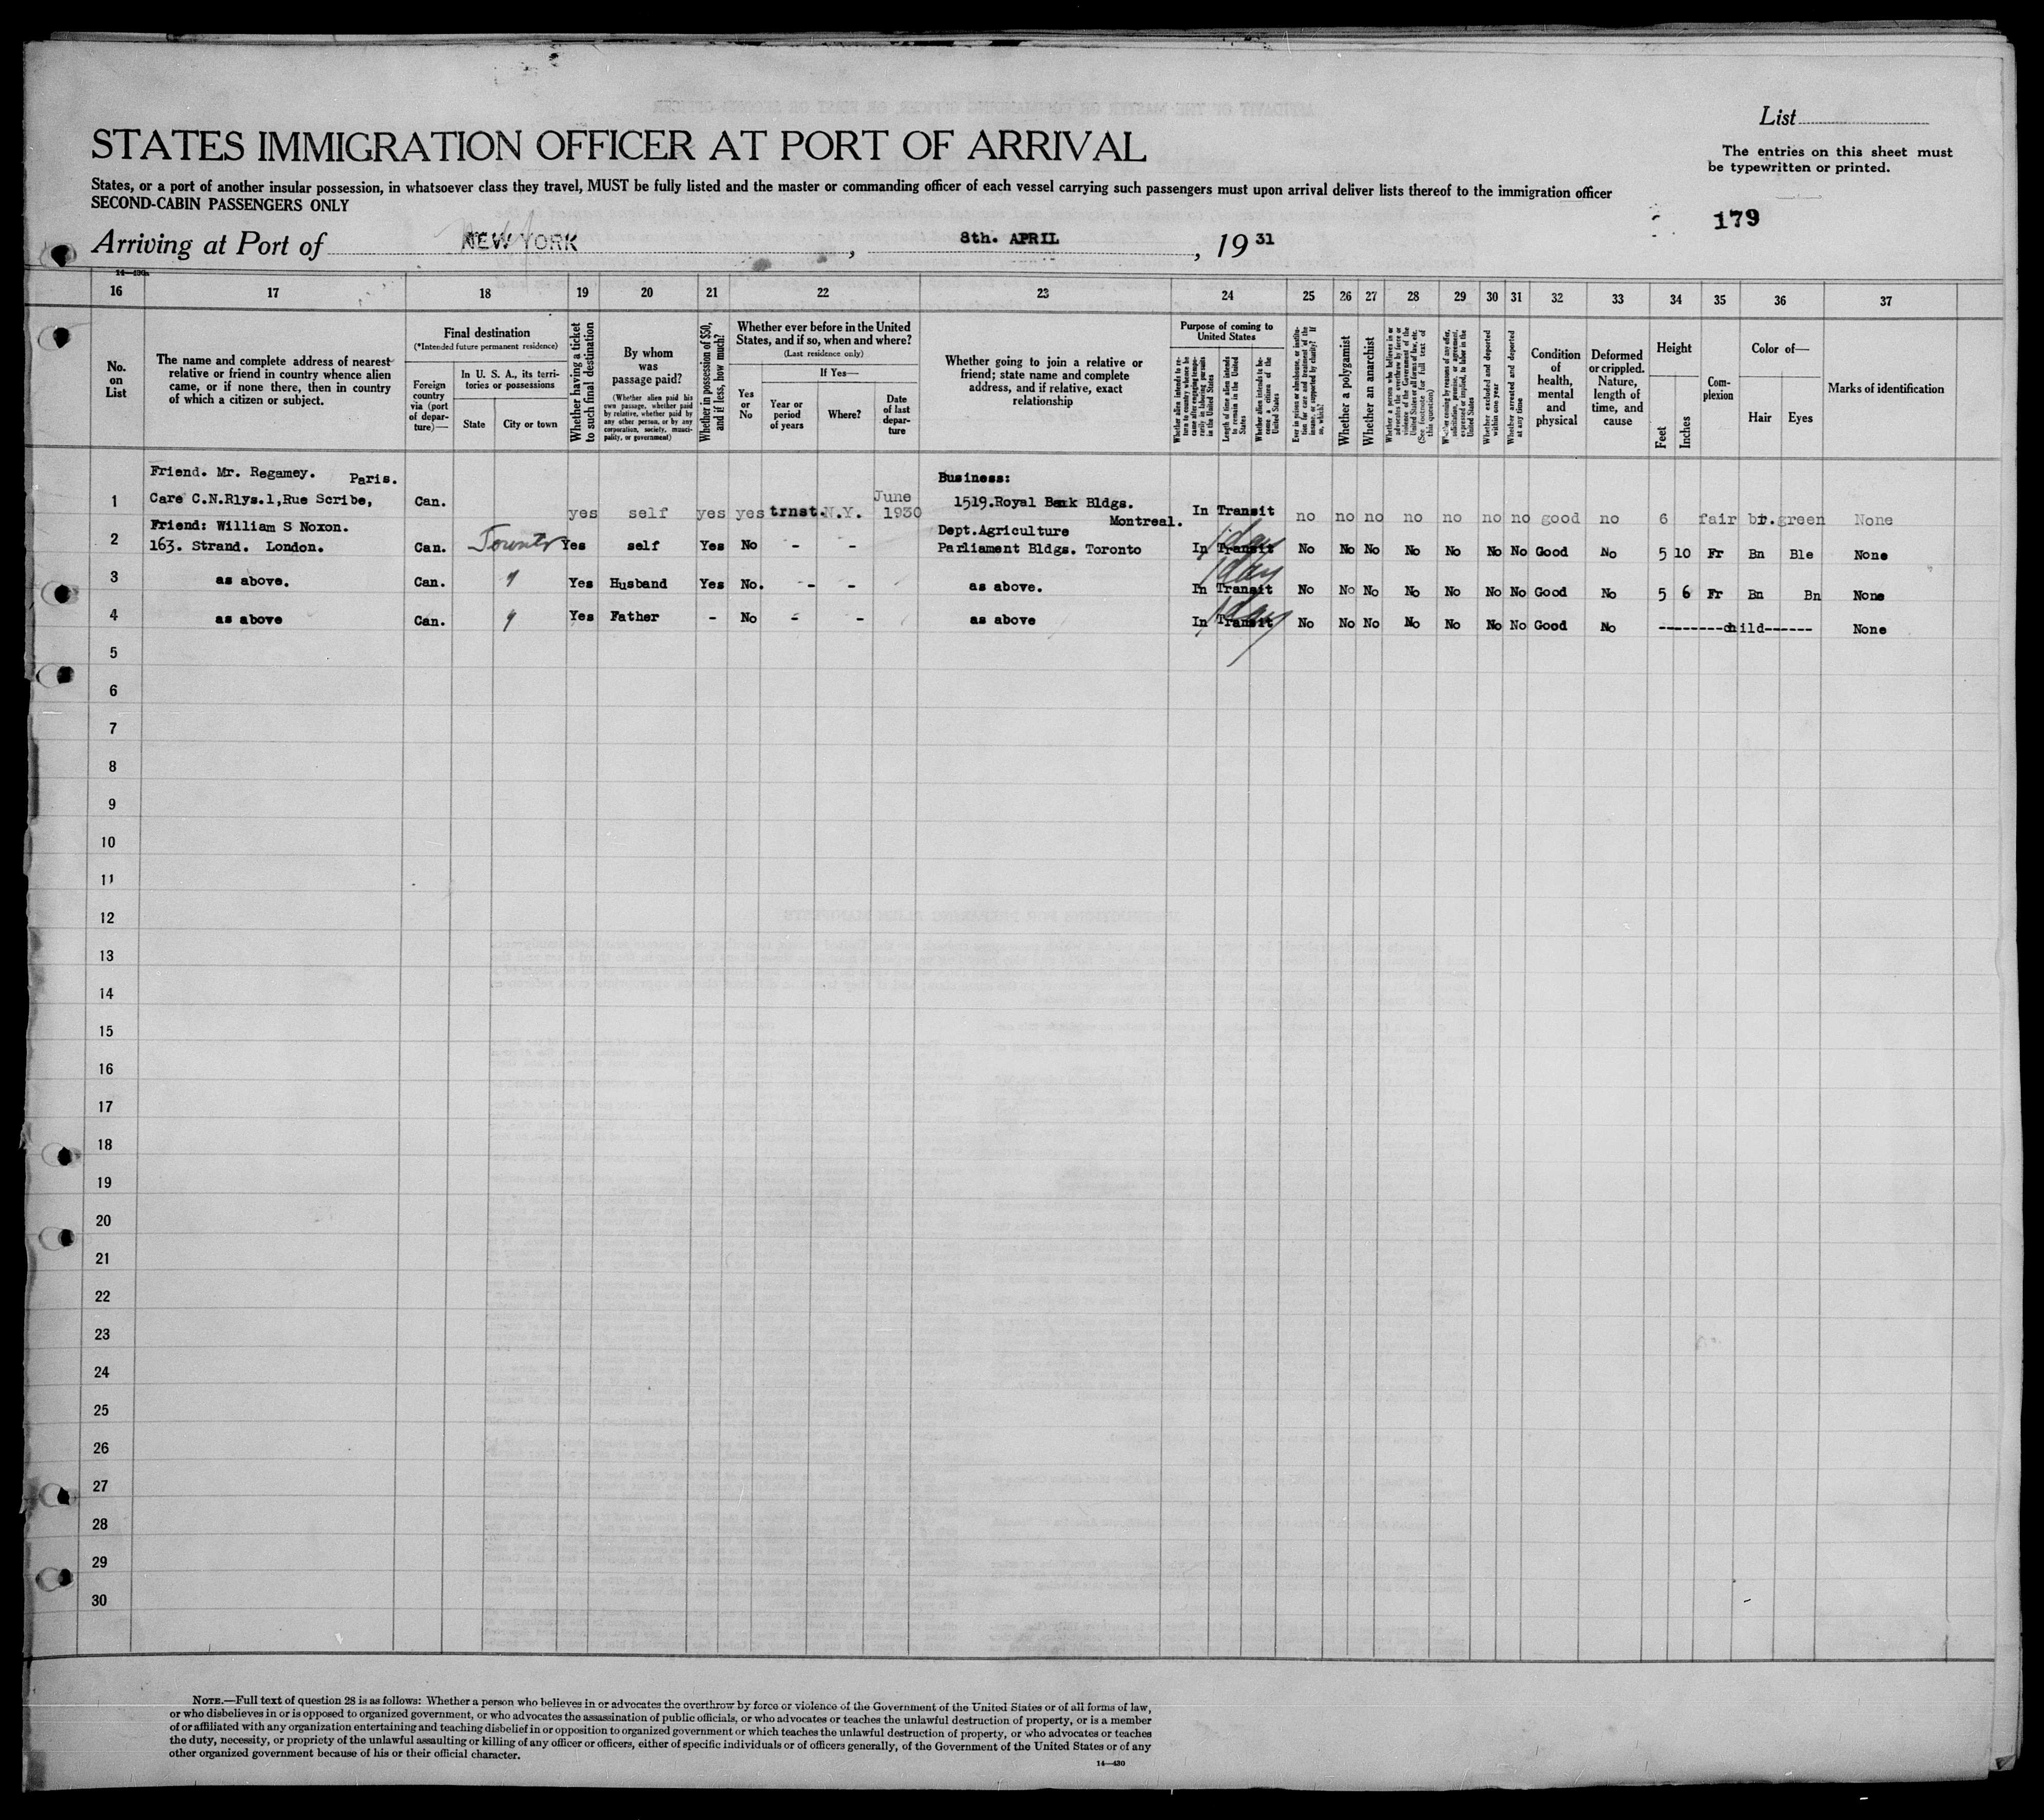 List
STATES IMMIGRATION OFFICER AT PORT OF ARRIVAL
The entries on this sheet must
be typewritten or printed.
States, or a port of another insular possession, in whatsoever class they travel, MUST be fully listed and the master or commanding officer of each vessel carrying such passengers must upon arrival deliver lists thereof to the immigration officer
SECOND-CABIN PASSENGERS ONLY
179
Arriving at Port of NEW YORK, 8th. APRIL, 19 31
16 17 18 19 20 21 22 23 24 25 26 27 28 29 30 31 32 33 34 35 36 37
No. on List
The name and complete address of nearest relative or friend in country whence alien came, or if none there, then in country of which a citizen or subject.
Final destination
(*Intended future permanent residence)
Foreign country via (port of departure)—
In U. S. A., its territories or possessions
State
City or town
Whether having a ticket to such final destination
By whom was passage paid?
(Whether alien paid his own passage, whether paid by relative, whether paid by any other person, or by any corporation, society, municipality, or government)
Whether in possession of $50, and if less, how much?
Whether ever before in the United States, and if so, when and where?
(Last residence only)
Yes or No
If Yes—
Year or period of years
Where?
Date of last departure
Whether going to join a relative or friend; state name and complete address, and if relative, exact relationship
Purpose of coming to United States
Whether alien intends to return to country whence he came after engaging temporarily in laboring pursuits in the United States
Length of time alien intends to remain in the United States
Whether alien intends to become a citizen of the United States
Ever in prison or almshouse, or institution for care and treatment of the insane, or supported by charity? If so, which?
Whether a polygamist
Whether an anarchist
Whether a person who believes in or advocates the overthrow by force or violence of the Government of the United States or all forms of law, etc. (See footnote for full text of this question)
Whether coming by reason of any offer, solicitation, promise, or agreement, expressed or implied, to labor in the United States
Whether excluded and deported within one year
Whether arrested and deported at any time
Condition of health, mental and physical
Deformed or crippled. Nature, length of time, and cause
Height
Feet
Inches
Complexion
Color of—
Hair
Eyes
Marks of identification
Friend. Mr. Regamey. Paris. Business:
1 Care C.N.Rlys.1,Rue Scribe, Can. yes self yes yes trnst. N.Y. June 1930 1519.Royal Bank Bldgs. Montreal. In Transit no no no no no no no good no 6 fair br. green None
Friend: William S Noxon. Dept.Agriculture
2 163. Strand. London. Can. Toronto Yes self Yes No - - Parliament Bldgs. Toronto In Transit 1 day No No No No No No No Good No 5 10 Fr Bn Ble None
3 as above. Can. " Yes Husband Yes No. - - as above. In Transit 1 day No No No No No No No Good No 5 6 Fr Bn Bn None
4 as above Can. " Yes Father - No - - as above In Transit 1 day No No No No No No No Good No --------child------ None
5
6
7
8
9
10
11
12
13
14
15
16
17
18
19
20
21
22
23
24
25
26
27
28
29
30
NOTE.—Full text of question 28 is as follows: Whether a person who believes in or advocates the overthrow by force or violence of the Government of the United States or of all forms of law,
or who disbelieves in or is opposed to organized government, or who advocates the assassination of public officials, or who advocates or teaches the unlawful destruction of property, or is a member
of or affiliated with any organization entertaining and teaching disbelief in or opposition to organized government or which teaches the unlawful destruction of property, or who advocates or teaches
the duty, necessity, or propriety of the unlawful assaulting or killing of any officer or officers, either of specific individuals or of officers generally, of the Government of the United States or of any
other organized government because of his or their official character.
14—430